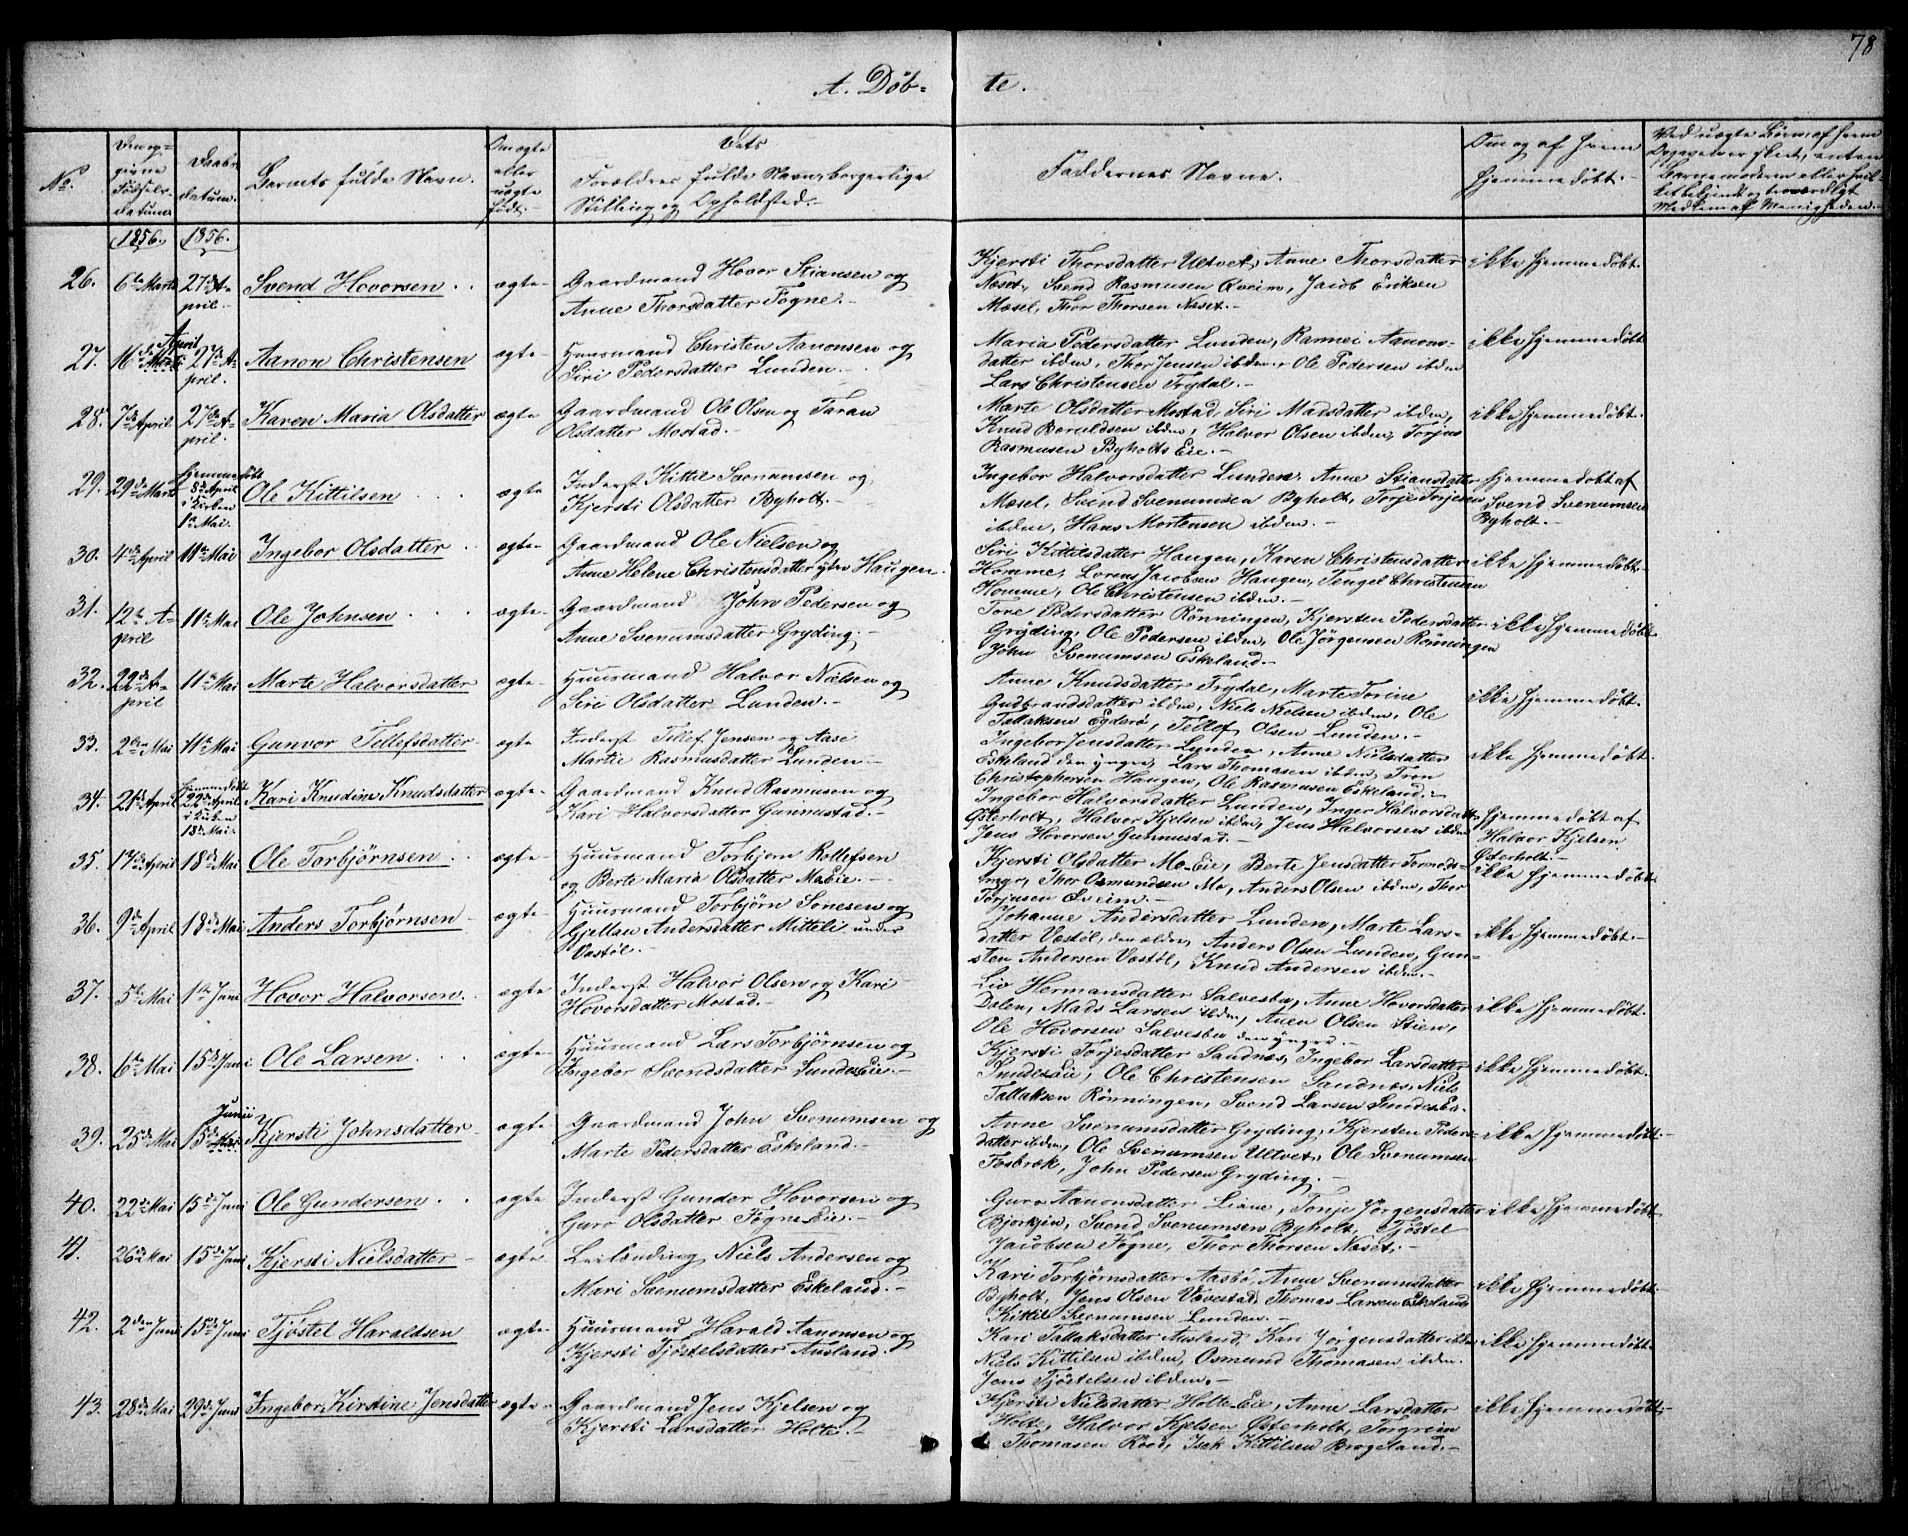 78
A. Døb- te.
No.
Den op-
givne
Fødsels-
datum
Daabs-
datum.
Barnets fulde Navn.
Om ægte
eller
uægte
født.
Dets
Forældres fulde Navn, borgerlige
Stilling og Opholdsted.
Faddernes Navne.
Om og af hvem
hjemmedøbt.
Ved uægte Børn, af hvem
Opgaven er skeet, enten
Barnemoderen eller hvil-
ket bekjendt og troværdigt
Medlem af Menigheden.
1856. 1856.
26. 6te Marts 27de A-
pril.
Svend Hovorsen
ægte
Gaardmand Hovor Stiansen og
Anne Thorsdatter Fogne.
Kjersti Thorsdatter Ultvet, Anne Thorsdatter
Næset, Svend Rasmusen Qveim, Jacob Eriksen
Mæsel, Thor Thorsen Næset.
ikke hjemmedøbt.
27. 16de Marts April 27de A-
pril.
Aanon Christensen
ægte
Huusmand Christen Aanonsen og
Siri Pedersdatter Lunden.
Maria Pedersdatter Lunden, Rannei Aanons-
datter ibdm, Thor Jensen ibdm, Ole Pedersen ibdm
Lars Christensen Trydal.
ikke hjemmedøbt
28. 7de April 27de A-
pril.
Karen Maria Olsdatter
ægte
Gaardmand Ole Olsen og Taran
Olsdatter Mostad.
Marte Olsdatter Mostad, Siri Madsdatter ibdm,
Knud Boruldsen ibdm, Halvor Olsen ibdm, Torjus
Rasmusen Byholts Eie.
ikke hjemmedøbt.
29. 29de Marts hjemmedøbt
8de April
i Kirken
1te Mai.
Ole Kittilsen
ægte
Inderst Kittil Svenumsen og
Kjersti Olsdatter Byholt.
Ingebor Halvorsdatter Lunden, Anne Stiansdatter
Mæsel, Svend Svenumsen Byholt, Torje Torjesen
ibdm, Hans Mortensen ibdm.
hjemmedøbt af
Svend Svenumsen
Byholt.
30. 4de April 11te Mai
Ingebor Olsdatter
ægte
Gaardmand Ole Nielsen og
Anne Helene Christensdatter ytre Haugen.
Siri Kittilsdatter Haugen, Karen Christensdatter
Homme, Lorens Jacobsen Haugen, Tengel Christensen
Homme, Ole Christensen ibdm.
ikke hjemmedøbt.
31. 12te A-
pril 11te Mai
Ole Johnsen
ægte
Gaardmand John Pedersen og
Anne Svenumsdatter Gryding.
Tone Pedersdatter Rönningen, Kjersten Pedersdatter
Gryding, Ole Pedersen ibdm, Ole Jørgensen Rönningen
John Svenumsen Eskeland.
ikke hjemmedøbt.
32. 22de A-
pril 11te Mai
Marte Halvorsdatter
ægte
Huusmand Halvor Nielsen og
Siri Olsdatter Lunden.
Anne Knudsdatter Trydal, Marte Torine
Gudbrandsdatter ibdm, Niels Nielsen ibdm, Ole
Tallaksen Egderö, Tellef Olsen Lunden.
ikke hjemmedøbt.
33. 2den Mai 11te Mai
Gunvor Tellefsdatter
ægte
Inderst Tellef Jensen og Aase
Martie Rasmusdatter Lunden
Ingebor Jensdatter Lunden, Anne Nielsdatter
Eskeland den yngre, Lars Thomasen ibdm, Tron
Christophersen Haugen, Ole Rasmusen Eskeland.
ikke hjemmedøbt.
34. 21de April hjemmedøbt
22de April
i Kirken
18de Mai.
Kari Knudine Knudsdatter
ægte
Gaardmand Knud Rasmusen og
Kari Halvorsdatter Gunnustad.
Ingebor Halvorsdatter Lunden, Inger Halvorsdatter
Østerholt, Halvor Kjelsen ibdm, Jens Halvorsen ibdm
Jens Hovorsen Gunnustad.
hjemmedøbt af
Halvor Kjelsen
Østerholt.
35. 17de April 18de Mai
Ole Torbjørnsen
ægte
Huusmand Torbjørn Rollefsen
og Berte Maria Olsdatter Mo Eie.
Kjersti Olsdatter Mo Eie, Berte Jensdatter
Thor Osmundsen Mo, Anders Olsen ibdm, Thor
Torjusen Qveim.
ikke hjemmedøbt
36. 9de April 18de Mai
Anders Torbjørnsen
ægte
Huusmand Torbjörn Sonesen og
Gjellau Andersdatter Mitteli under
Vastöl.
Johanne Andersdatter Lunden, Marte Lars-
datter Vastöl, den ældre, Anders Olsen Lunden, Gun-
sten Andersen Vastöl, Knud Andersen ibdm.
ikke hjemmedøbt.
37. 5te Mai 1ste Juni
Hovor Halvorsen
ægte
Inderst Halvor Olsen og Kari
Hovorsdatter Mostad.
Liv Hermansdatter Salvesbu, Anne Hovorsdatter
Dalen, Mads Larsen ibdm, Aven Olsen Stien,
Ole Hovorsen Salvesbu den yngre.
ikke hjemmedøbt.
38. 6te Mai 15de Juni
Ole Larsen
ægte
Huusmand Lars Torbjørnsen og
Ingebor Svendsdatter Sundes Eie.
Kjersti Torjesdatter Sandnæs, Ingebor Larsdatter
Sundes Eie, Ole Christensen Sandnæs, Niels
Tallaksen Rönningen, Svend Larsen Sundes Eie.
ikke hjemmedøbt.
39. 25de Mai Junii 15de Mai
Kjersti Johnsdatter
ægte
Gaardmand John Svenumsen og
Marte Pedersdatter Eskeland.
Anne Svenumsdatter Gryding, Kjersten Peders-
datter ibdm, Ole Svenumsen Ultvet, Ole Svenumsen
Fosbræk, John Pedersen Gryding.
ikke hjemmedøbt.
40. 22de Mai 15de Juni
Ole Gundersen
ægte
Inderst Gunder Hovorsen og
Guro Olsdatter Fogne Eie.
Guro Aanonsdatter Liene, Tonje Jörgensdatter
Bjorkjin, Svend Svenumsen Byholt, Tjöstel
Jacobsen Fogne, Thor Thorsen Næset.
ikke hjemmedøbt
41. 26de Mai 15de Juni
Kjersti Nielsdatter
ægte
Leilænding Niels Andersen og
Mari Svenumsdatter Eskeland.
Kari Torbjørnsdatter Aasbö, Anne Svenumsdatter
Byholt, Jens Olsen Vævestad, Thomas Larsen Eskeland
Kittil Svenumsen Lunden.
ikke hjemmedøbt.
42. 2den Juni 15de Juni
Tjöstel Haraldsen
ægte
Huusmand Harald Aanonsen og
Kjersti Tjöstelsdatter Ausland.
Kari Tallaksdatter Ausland, Kari Jörgensdatter ibdm
Niels Kittilsen ibdm, Osmund Thomasen ibdm.
Jens Tjöstelsen ibdm.
ikke hjemmedøbt.
43. 28de Mai 29de Juni
Ingebor Kirstine Jensdatter
ægte
Gaardmand Jens Kjelsen og
Kjersti Larsdatter Holte.
Kjersti Nielsdatter Holte Eie, Anne Larsdatter
Holte, Halvor Kjelsen Østerholt, Torgrim
Thomasen Röed, Isak Kittilsen Brogeland.
ikke hjemmedøbt.